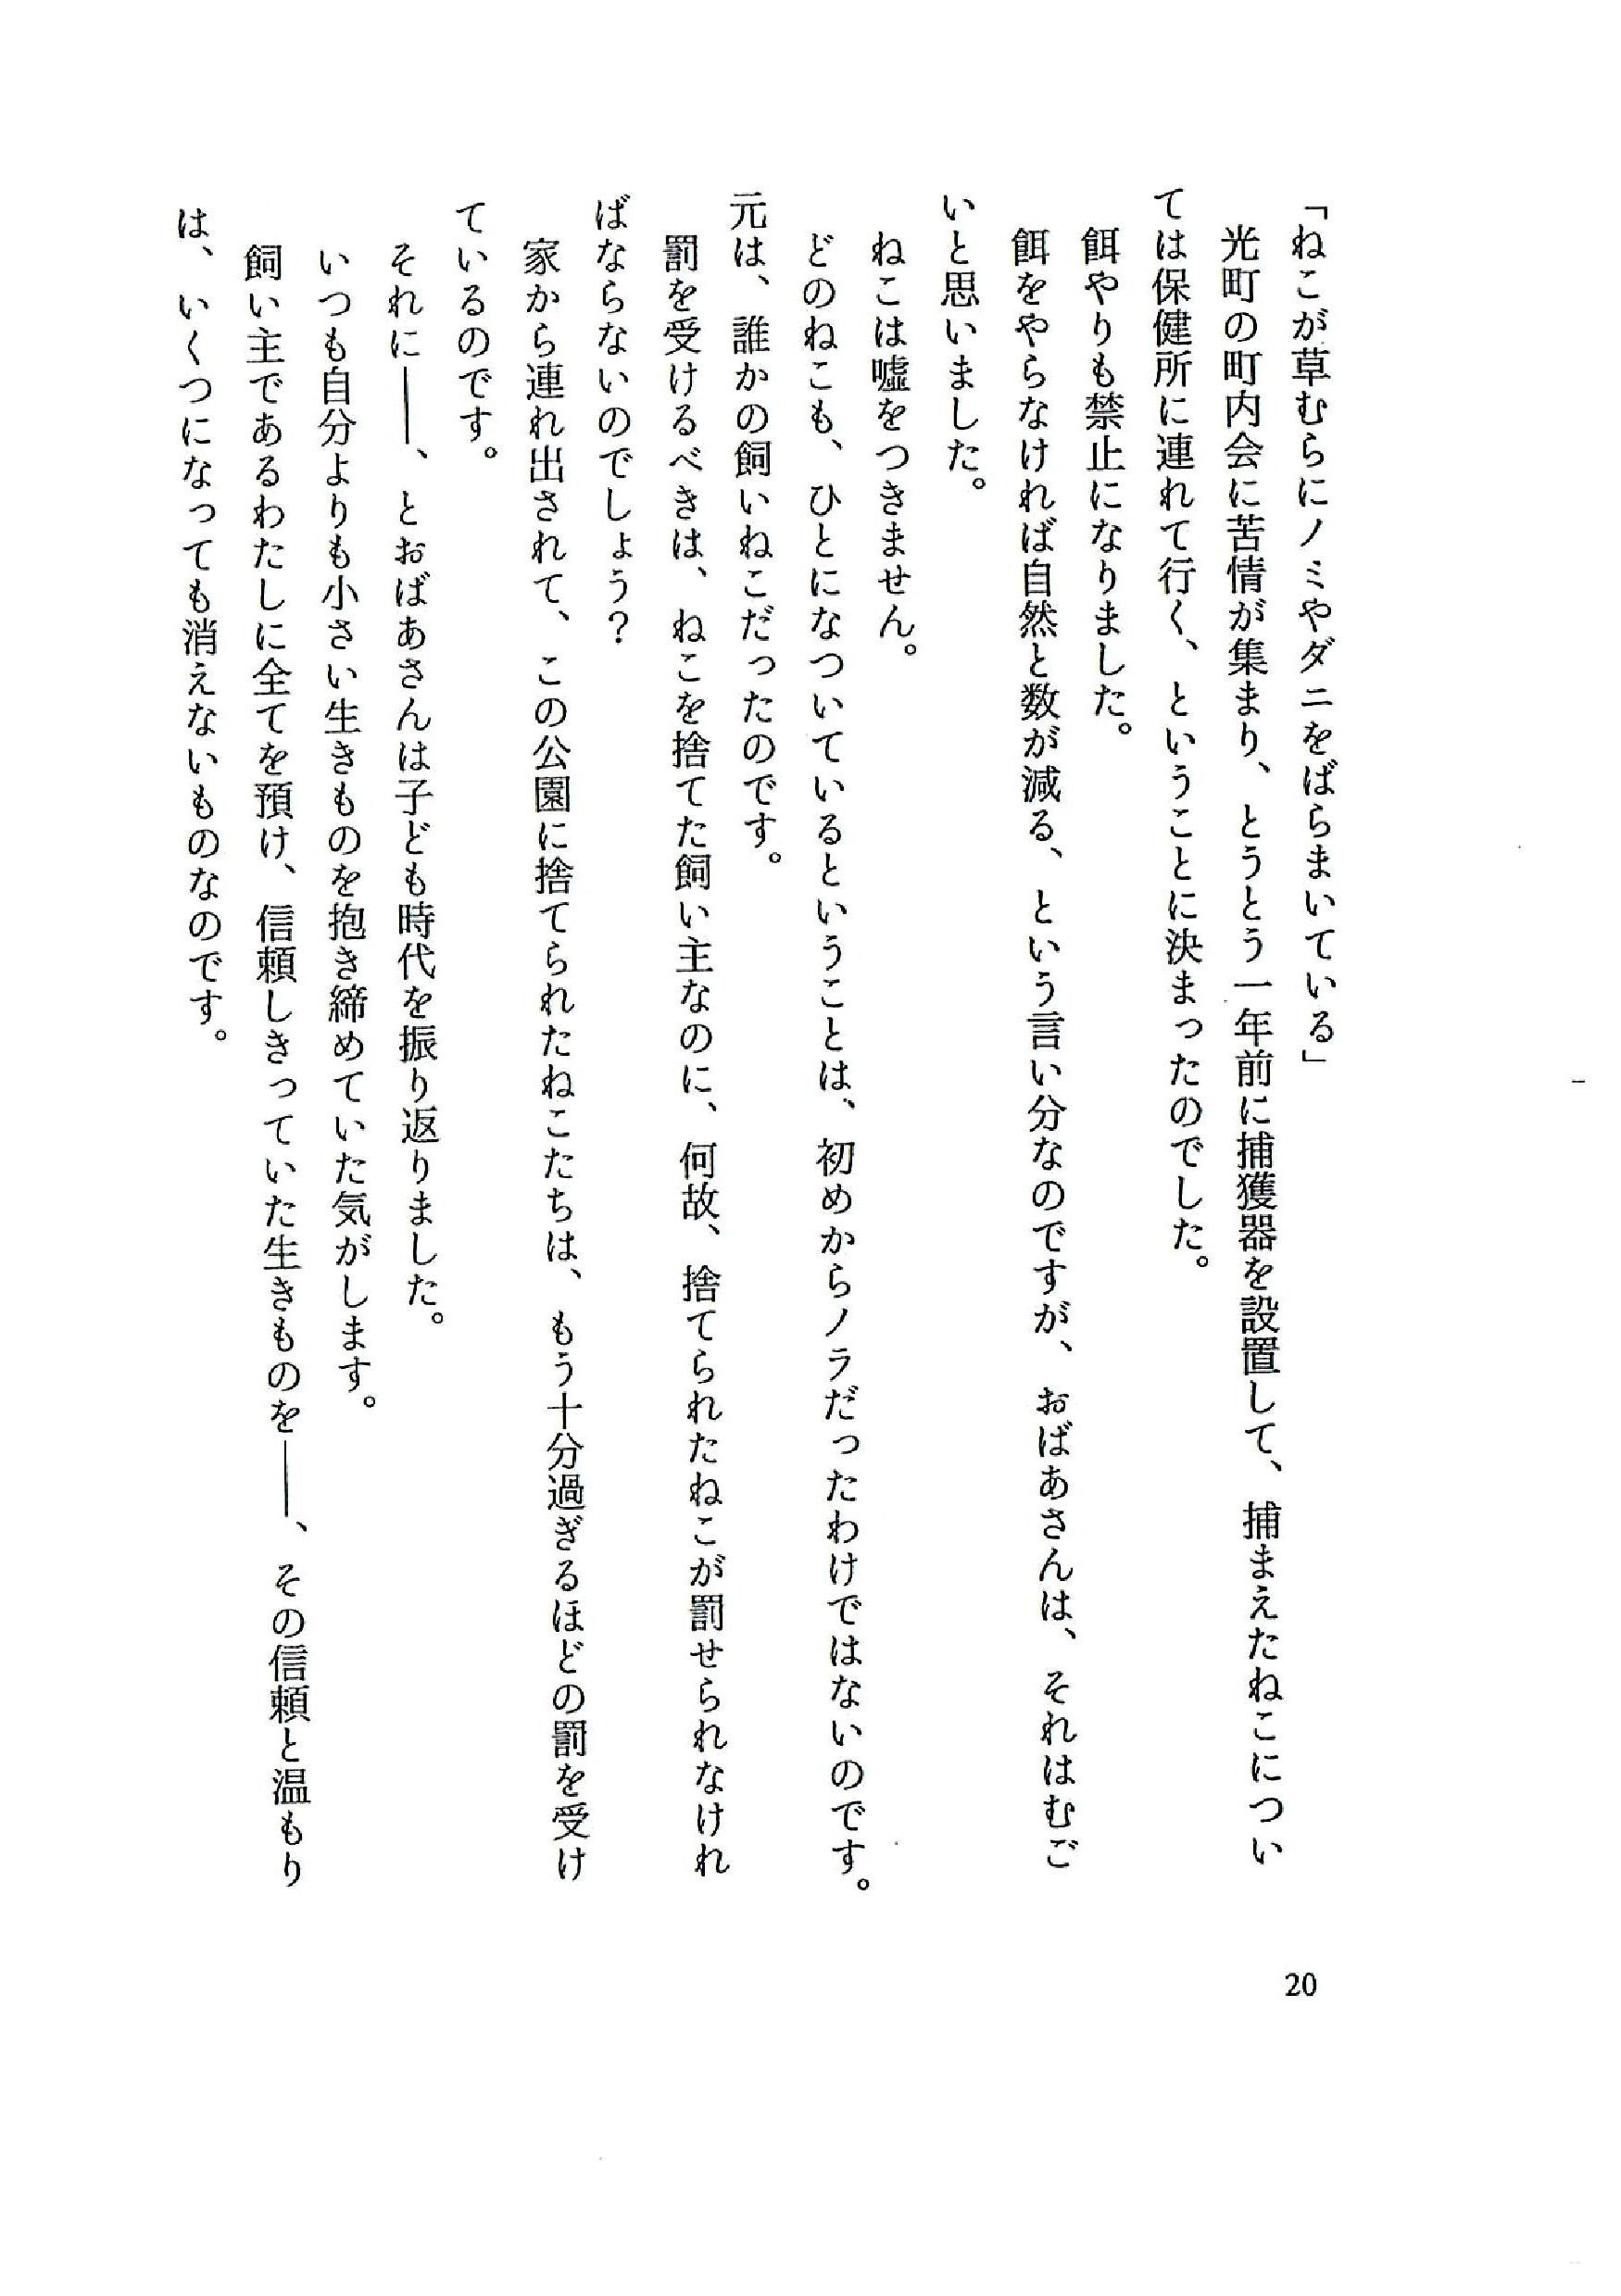 「ねこが草むらにノミやダニをばらまいている」
光町の町内会に苦情が集まり、とうとう一年前に捕獲器を設置して、捕まえたねこについ
ては保健所に連れて行く、ということに決まったのでした。
餌やりも禁止になりました。
餌をやらなければ自然と数が減る、という言い分なのですが、おばあさんは、それはむご
いと思いました。
ねこは嘘をつきません。
どのねこも、ひとになついているということは、初めからノラだったわけではないのです。
元は、誰かの飼いねこだったのです。
罰を受けるべきは、ねこを捨てた飼い主なのに、何故、捨てられたねこが罰せられなけれ
ばならないのでしょう？
家から連れ出されて、この公園に捨てられたねこたちは、もう十分過ぎるほどの罰を受け
ているのです。
それに――、とおばあさんは子ども時代を振り返りました。
いつも自分よりも小さい生きものを抱き締めていた気がします。
飼い主であるわたしに全てを預け、信頼しきっていた生きものを――、その信頼と温もり
は、いくつになっても消えないものなのです。
20